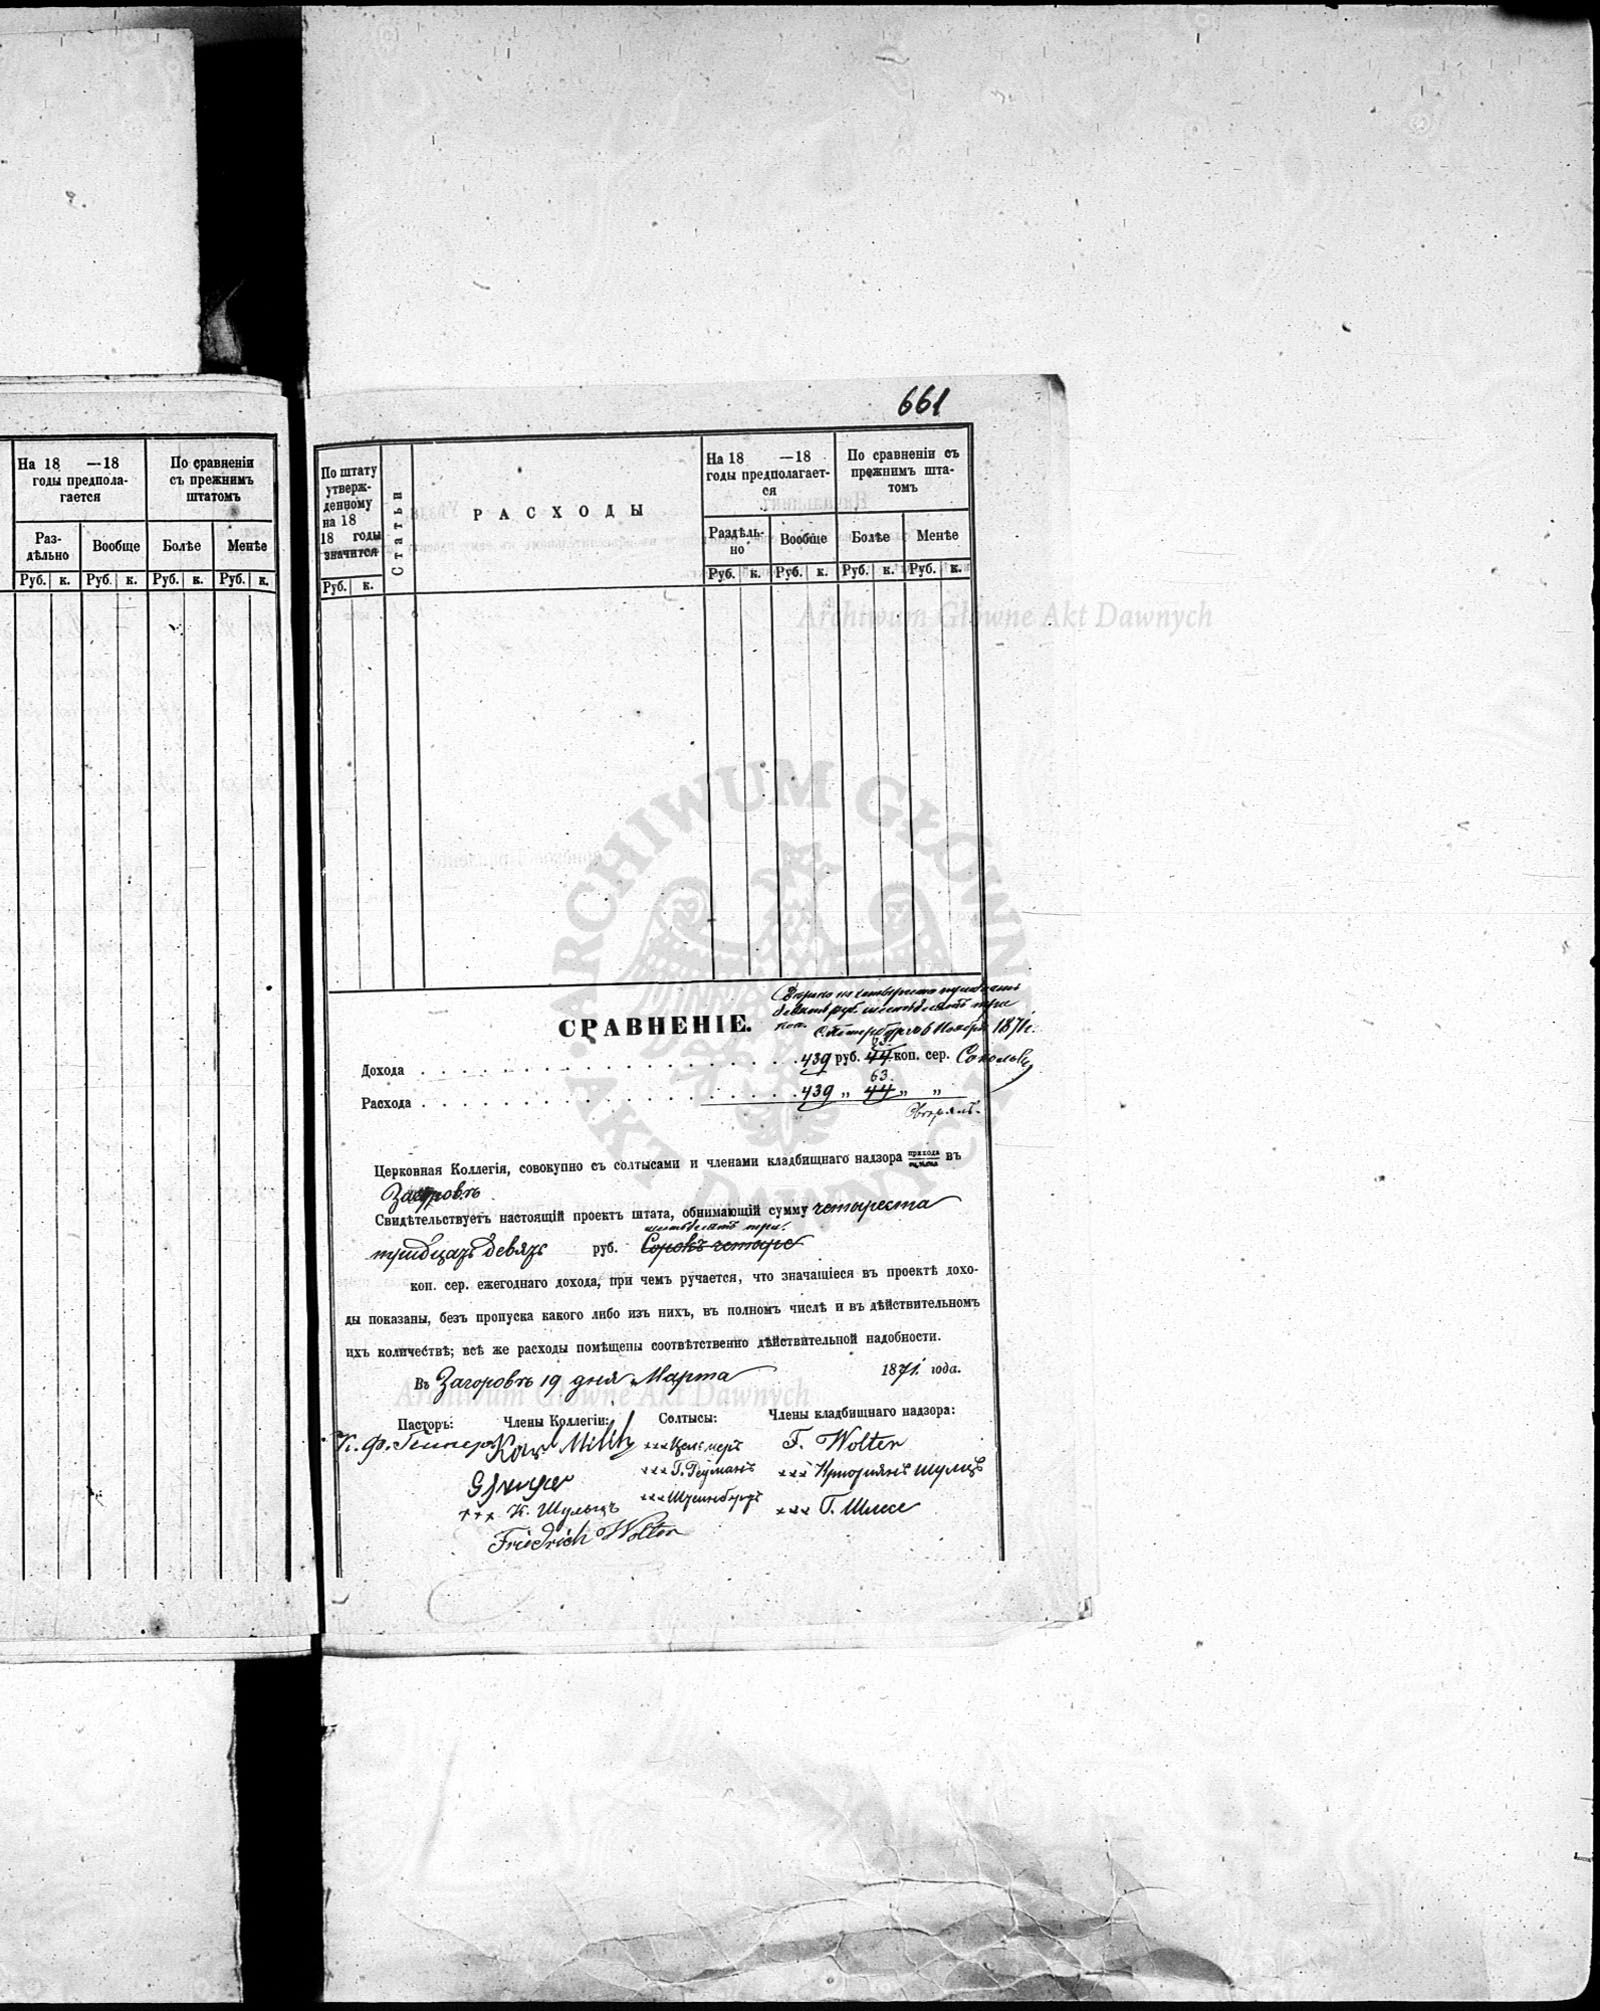 661
На 18 —18
годы предпола-
гается
По сравненіи
съ прежнимъ
штатомъ
Раз-
дѣльно
Вообще
Болѣе
Менѣе
Руб. к. Руб. к. Руб. к. Руб. к.
По штату
утверж-
денному
на 18
18 годы
значится
Руб. к.
Статьи
РАСХОДЫ
На 18 —18
годы предполагает-
ся
По сравненіи съ
прежнимъ шта-
томъ
Раздѣль-
но
Вообще
Болѣе
Менѣе
Руб. к. Руб. к. Руб. к. Руб. к.
Archiwum Główne Akt Dawnych
ARCHIWUM GŁÓWNE AKT DAWNYCH
девять руб. шестьдесятъ три
коп. С. Петербургъ 6 Ноября 1871 г.
СРАВНЕНІЕ.
63.
Дохода . . . 439 руб. 44 коп. сер.
63.
Расхода . . . 439 „ 44 „ „
Церковная Коллегія, совокупно съ солтысами и членами кладбищнаго надзора прихода въ
Загоровъ
Свидѣтельствуетъ настоящій проектъ штата, обнимающій сумму четыреста
шестьдесятъ три
тридцать девять руб. Сорокъ четыре
коп. сер. ежегоднаго дохода, при чемъ ручается, что значащіеся въ проектѣ дохо-
ды показаны, безъ пропуска какого либо изъ нихъ, въ полномъ числѣ и въ дѣйствительномъ
ихъ количествѣ; всѣ же расходы помѣщены соотвѣтственно дѣйствительной надобности.
Въ Загоровѣ 19 дня Марта 1871 года.
Archiwum Główne Akt Dawnych
Пасторъ: Члены Коллегіи: Солтысы: Члены кладбищнаго надзора:
К. Ф.
F. Wolter
xxx Г. Рейманъ
xxx
+++ К. Шульцъ
xxx Г. Шлесе
Friedrich Wolter